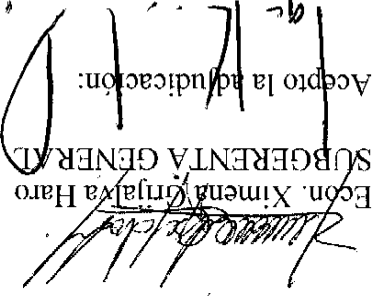 Econ. Ximena Grijalva Haro
SUBGERENTA GENERAL
Acepto la adjudicación: